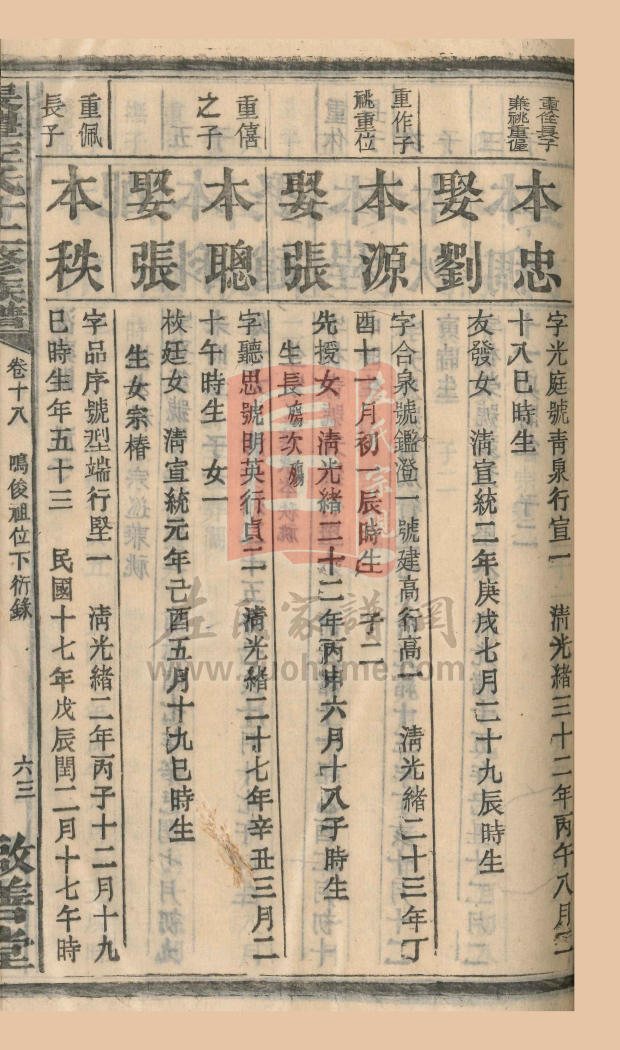 重侄長子
兼祧重僵
本忠
字光庭號靑泉行宣一　淸光緖三十二年丙午八月二
十八巳時生
娶劉
友發女　淸宣統二年庚戌七月二十九辰時生
重作子
祧重位
本源
字合泉號鑑澄一號建高行高一　淸光緖二十三年丁
酉十一月初一辰時生　子二
娶張
先授女　淸光緖三十二年丙申六月十八子時生
生長殤次殤
重僖
之子
本聰
字聽思號明英行貞二　淸光緖二十七年辛丑三月二
十午時生　子　女一
娶張
校廷女　淸宣統元年己酉五月十九巳時生
生女宗椿
重佩
長子
本秩
字品序號型端行堅一　淸光緖二年丙子十二月十九
巳時生年五十三　民國十七年戊辰閏二月十七午時
左氏十二修族譜
卷十八　鳴俊祖位下衍錄
六三
啟善堂
左氏家譜網
www.zuohome.com